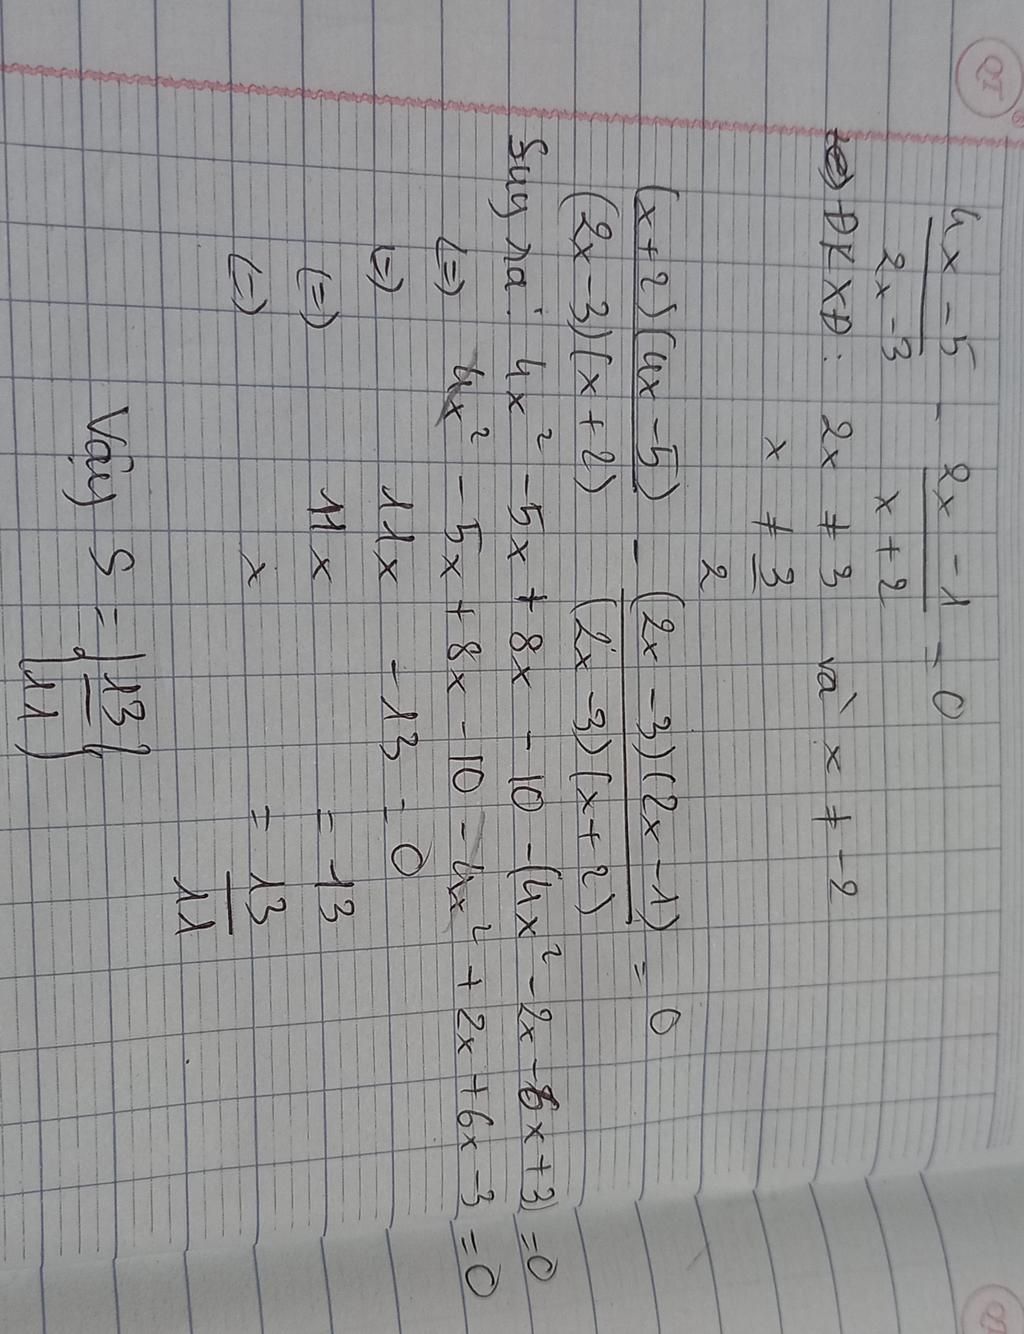 4x - 5 - 2x - 1 = 0
2x - 3 x + 2
ĐKXĐ: 2x ≠ 3 và x ≠ -2
x ≠ 3
2
(x + 2)(4x - 5) - (2x - 3)(2x - 1) = 0
(2x - 3)(x + 2) (2x - 3)(x + 2)
Suy ra: 4x² - 5x + 8x - 10 - (4x² - 2x - 6x + 3) = 0
(=) 4x² - 5x + 8x - 10 - 4x² + 2x + 6x - 3 = 0
(=) 11x - 13 = 0
(=) 11x = 13
(=) x = 13
11
Vậy S = {13
11}